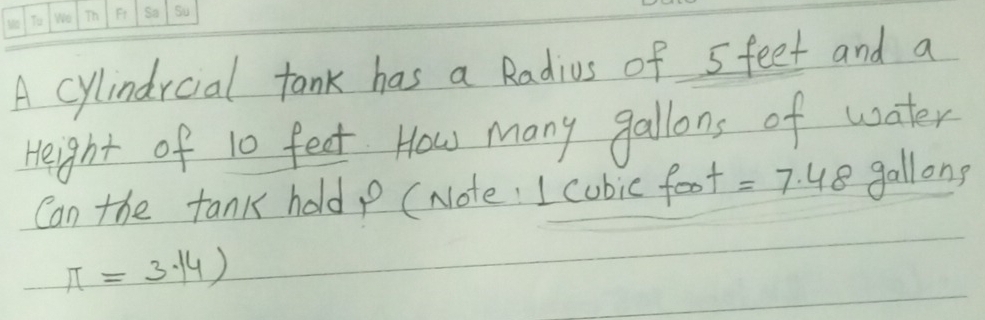 Mo Tu We Th Fr Sa Su
A cylindrcial tank has a Radius of 5 feet and a
Height of 10 feet. How many gallons of water
Can the tank hold? (Note: 1 cubic foot = 7.48 gallons
π = 3.14)